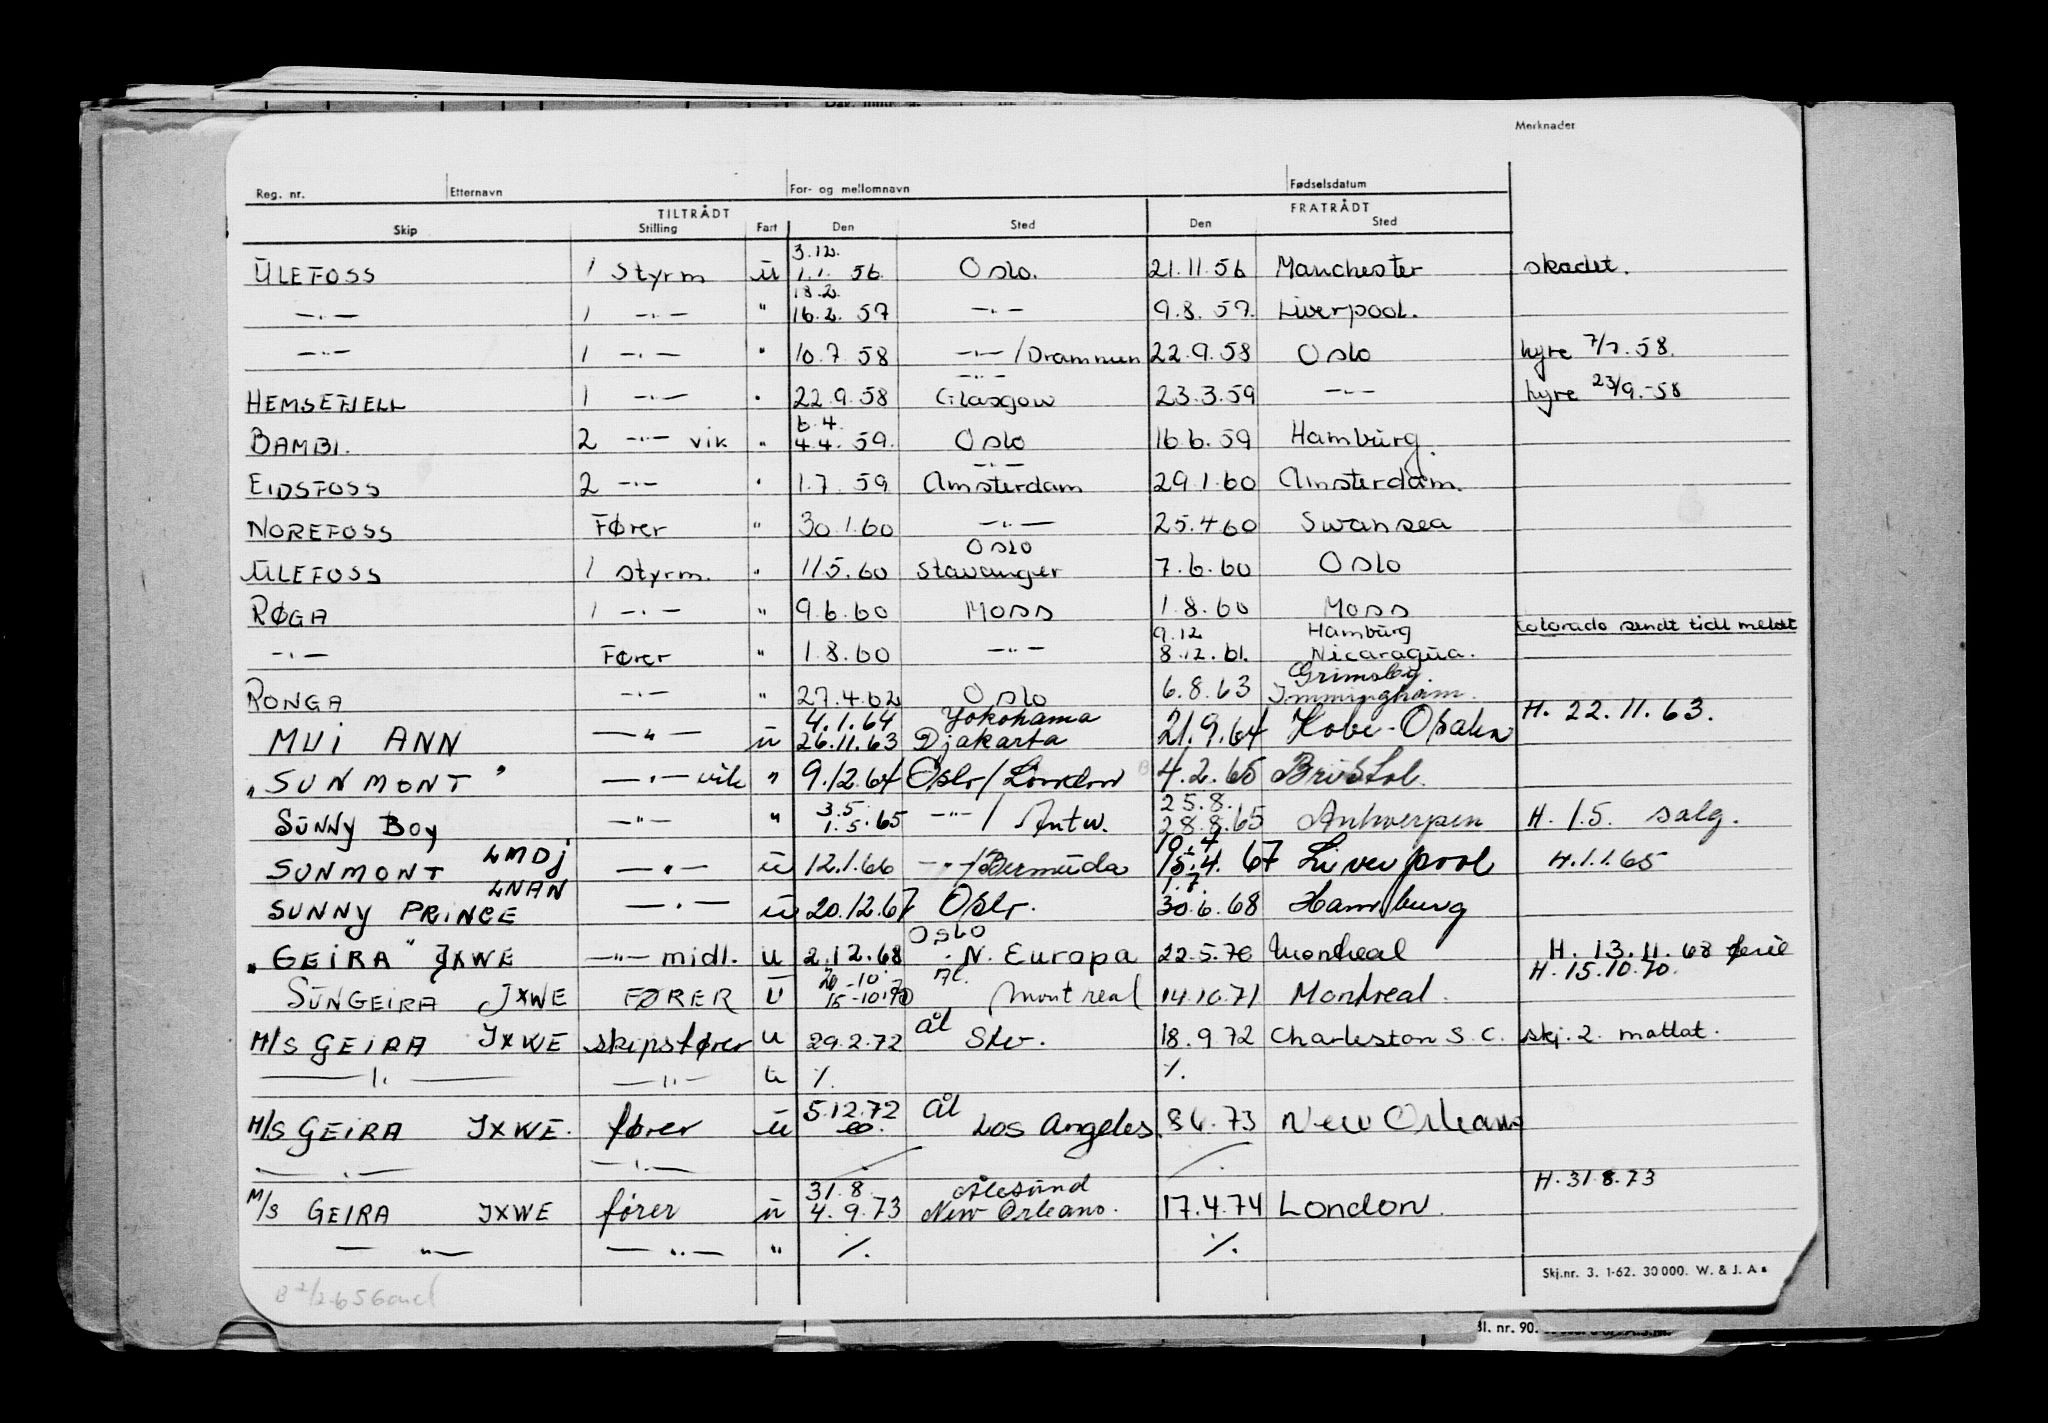 Merknader
Reg. nr. Etternavn For- og mellomnavn Fødselsdatum
TILTRÅDT FRATRÅDT
Skip Stilling Fart Den Sted Den Sted
3.12.
ULEFOSS 1 Styrm u 1.1. 56. Oslo. 21.11.56 Manchester skadet.
18.2.
—·— 1 —·— " 16.2. 57 —·— 9.8. 57. Liverpool.
—·— 1 —·— " 10.7 58 —·—/Drammen 22.9.58 Oslo hyre 7/7.58.
—·—
HEMSEFJELL 1 —·— " 22.9.58 Glasgow 23.3.59 —·— hyre 23/9.-58
6.4.
BAMBI. 2 —·— vik " 4.4. 59. Oslo 16.6.59 Hamburg.
—·—
EIDSFOSS 2 —·— " 1.7. 59 Amsterdam 29.1.60 Amsterdam.
NOREFOSS Fører " 30.1.60 —·— 25.4.60 Swansea
Oslo
ULEFOSS 1 styrm. " 11.5.60 Stavanger 7.6.60 Oslo
RØGA 1 —·— " 9.6.60 Moss 1.8.60 Moss
9.12 Hamburg Colorado sendt tidl meldt
—·— Fører " 1.8.60 —·— 8.12.61. Nicaragua.
Grimsby.
RONGA —·— " 27.4.62 Oslo 6.8.63 Immingham.
4.1.64 Yokohama H. 22.11.63.
MUI ANN —"— u 26.11.63 Djakarta 21.9.64 Kobe-Osaka
"SUNMONT" —·— vik " 9.12.64 Oslo/London 4.2.65 Bristol.
3.5. 25.8.
SUNNY BOY —"— " 1.5.65 —"—/ Antw. 28.8.65 Antwerpen H. 1.5. salg.
LMDJ 19.4
SUNMONT —"— u 12.1.66 —"—/Bermuda 15.4.67 Liverpool H.1.1.65
LNAN 1.7.
SUNNY PRINCE —·— u 20.12.67 Oslo. 30.6.68 Hamburg
OSLO
"GEIRA" JXWE —"— midl. U 2.12.68 N. Europa 22.5.70 Montreal H. 13.11.68 ferie
20-10. Ål. H. 15.10.70.
SUNGEIRA JXWE FØRER U 15-10-70 Montreal 14.10.71 Montreal.
ål
M/S GEIRA JXWE skipsfører u 29.2.72 Stv. 18.9.72 Charleston S.C. skj. 2. mottat.
—"— —"— u %. %.
5.12.72 ål
M/S GEIRA JXWE. fører u Los Angeles. 8.6.73 New Orleans
—·— —·— % %
31.8. Ålesund H.31.8.73
M/S GEIRA JXWE fører u 4.9.73 New Orleans. 17.4.74 London.
—"— —"— " %. %.
Skj.nr. 3. 1-62. 30000. W. & J. A s
Bl. nr. 90.